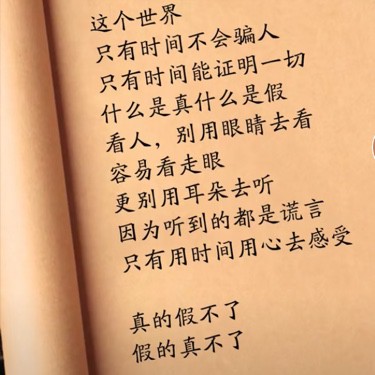 这个世界
只有时间不会骗人
只有时间能证明一切
什么是真什么是假
看人，别用眼睛去看
容易看走眼
更别用耳朵去听
因为听到的都是谎言
只有用时间用心去感受
真的假不了
假的真不了